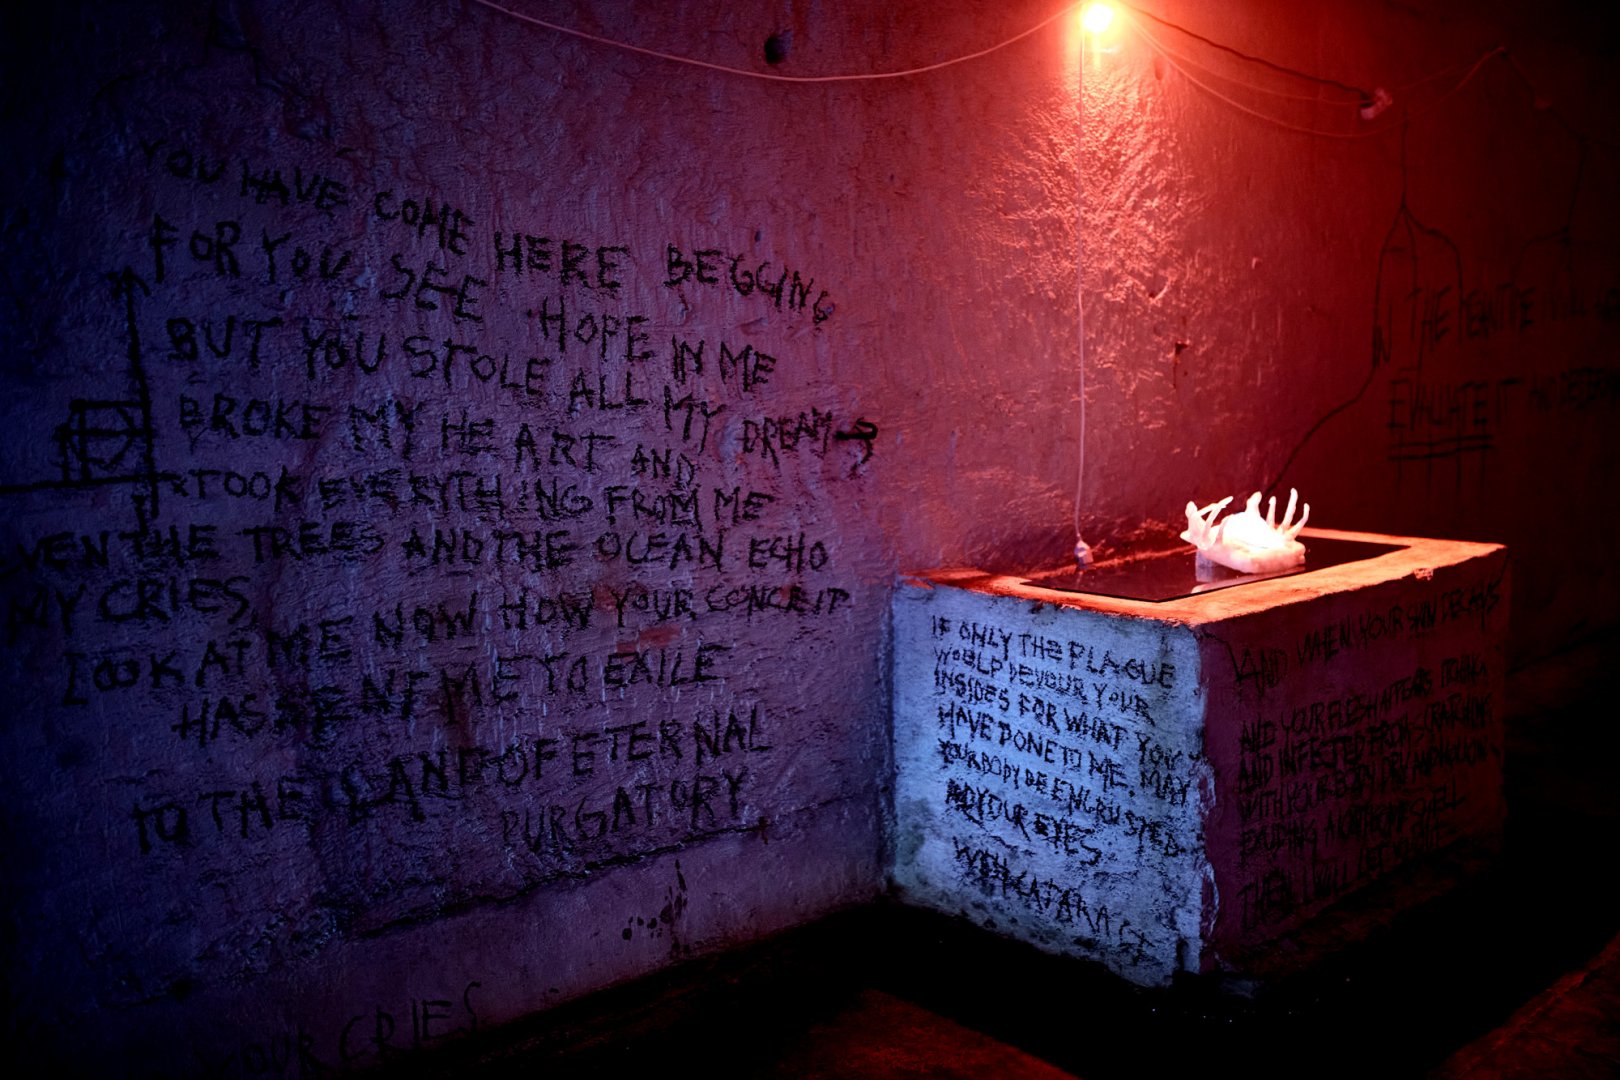 YOU HAVE COME HERE BEGGING
FOR YOU SEE HOPE IN ME
BUT YOU STOLE ALL MY DREAMS
BROKE MY HEART AND
TOOK EVERYTHING FROM ME
EVEN THE TREES AND THE OCEAN ECHO
MY CRIES
LOOK AT ME NOW HOW YOUR CONCEIT
HAS SENT ME TO EXILE
TO THE ISLAND OF ETERNAL
PURGATORY
YOUR CRIES
IF ONLY THE PLAGUE
WOULD DEVOUR YOUR
INSIDES FOR WHAT YOU
HAVE DONE TO ME, MAY
YOUR BODY BE ENGRUSTED
AND YOUR EYES
WITH
AND WHEN YOUR SKIN DECAYS
AND YOUR FLESH APPEARS
AND INFESTED FROM SCRATCHING
WITH YOUR BODY DRY AND
SMELL
THEN I WILL LET
IN THE